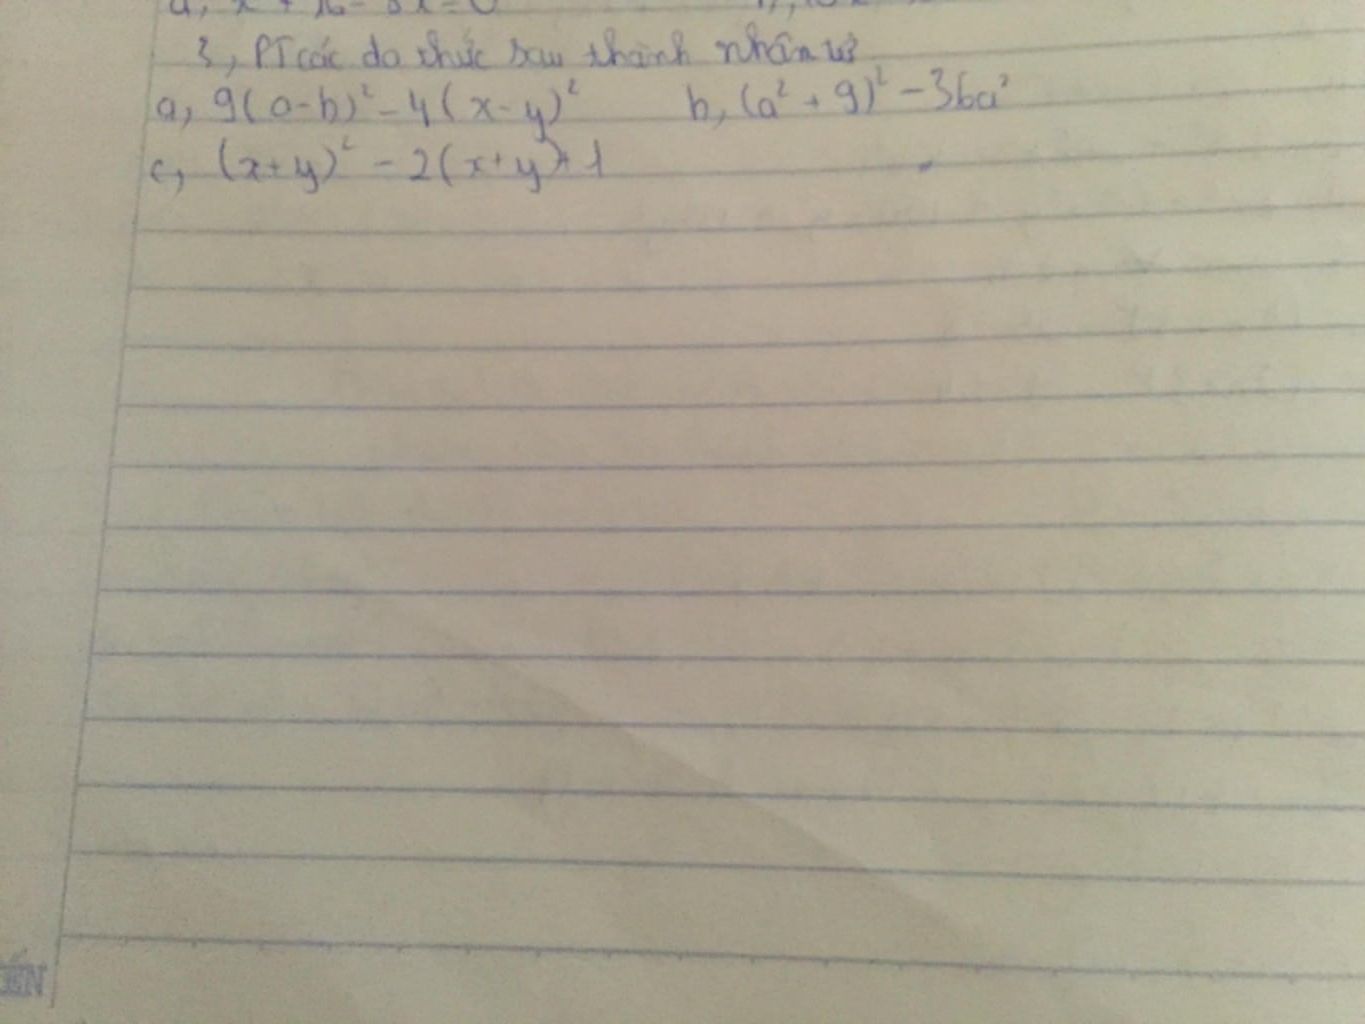 a, x² + 16 - 8x = 0
3, PT các đa thức sau thành nhân tử
a, 9(a-b)² - 4(x-y)² b, (a² + 9)² - 36a²
c, (x+y)² - 2(x+y)+1
ẾN